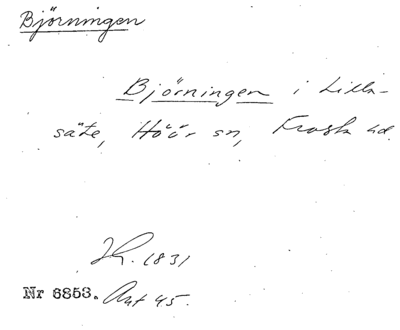 Björningen
Björningen i Lilla-
säte, Höör sn, Frosta hd.
1831
Nr 6853. Ant 45.